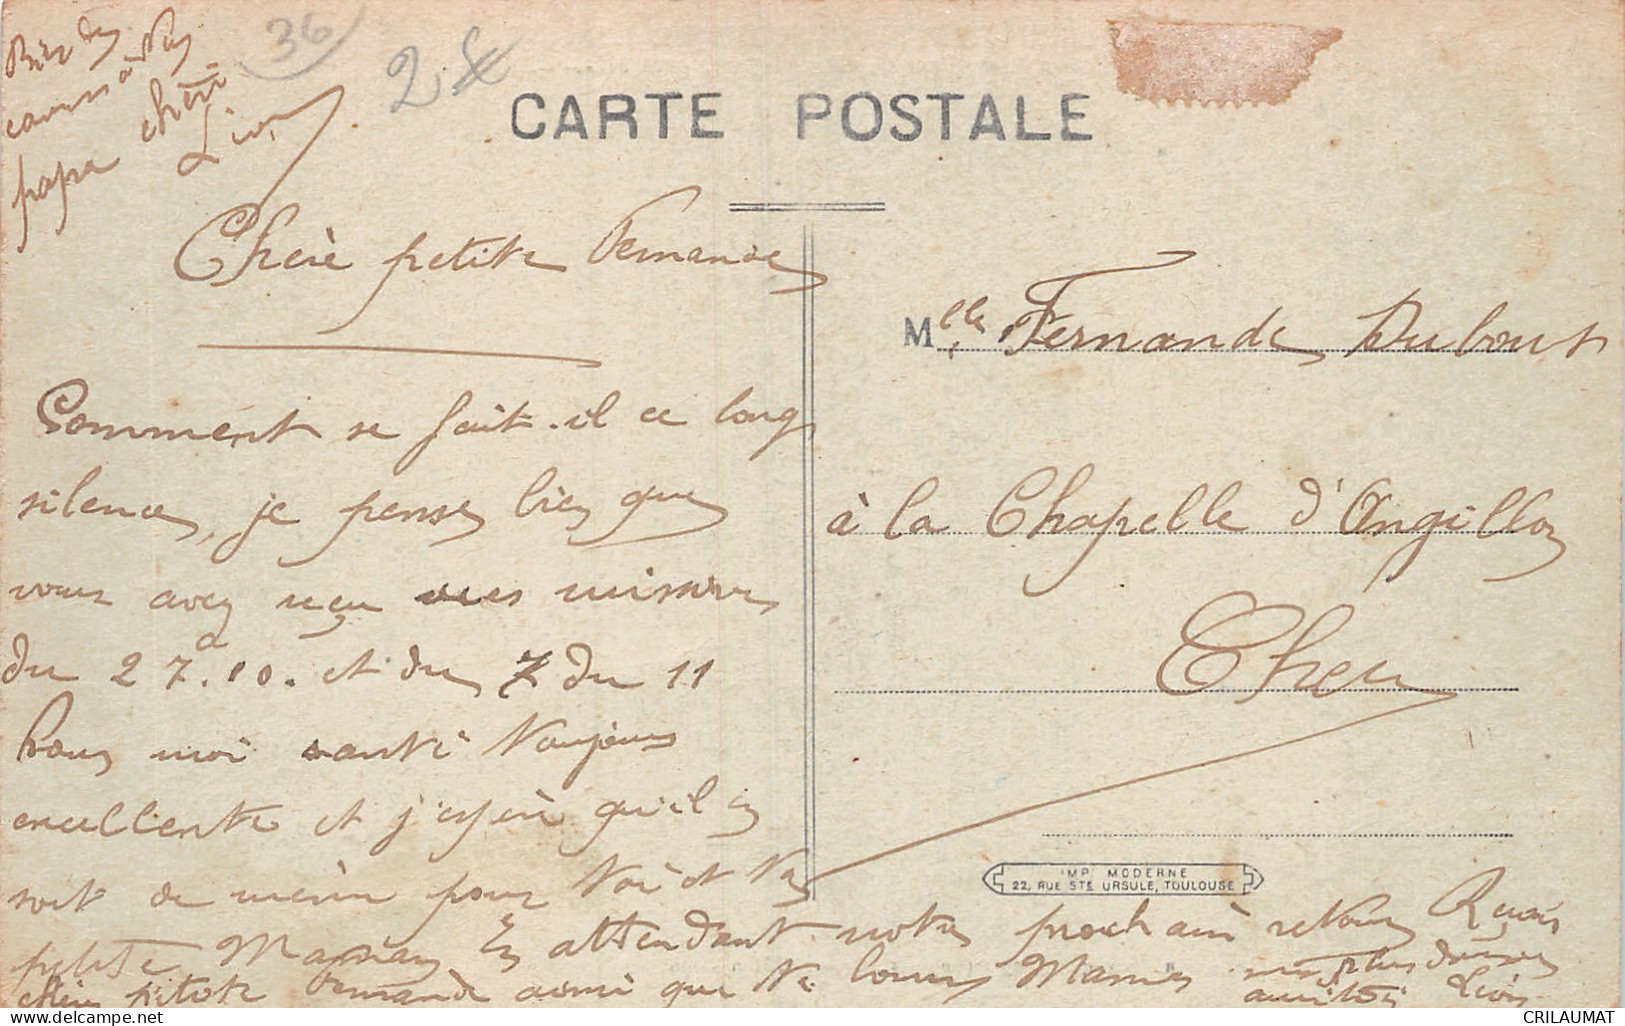 36
2
CARTE POSTALE
papa chéri
Léon
Chère petite Fernande
Comment se fait-il ce long
silence, je pense bien que
vous avez reçu mes missives
du 27.10. et du 7 du 11
Pour moi santé toujours
excellente et j'espère qu'il en
soit de même pour toi et ta
petite Maman En attendant notre prochain retour Reçois
chère petite Fernande ainsi que ta Maman mes plus douces
amitiés Léon
Mlle Fernande Dubout
à la Chapelle d'Angillon
Cher
IMP. MODERNE
22, RUE STE URSULE, TOULOUSE
CRILAUMAT